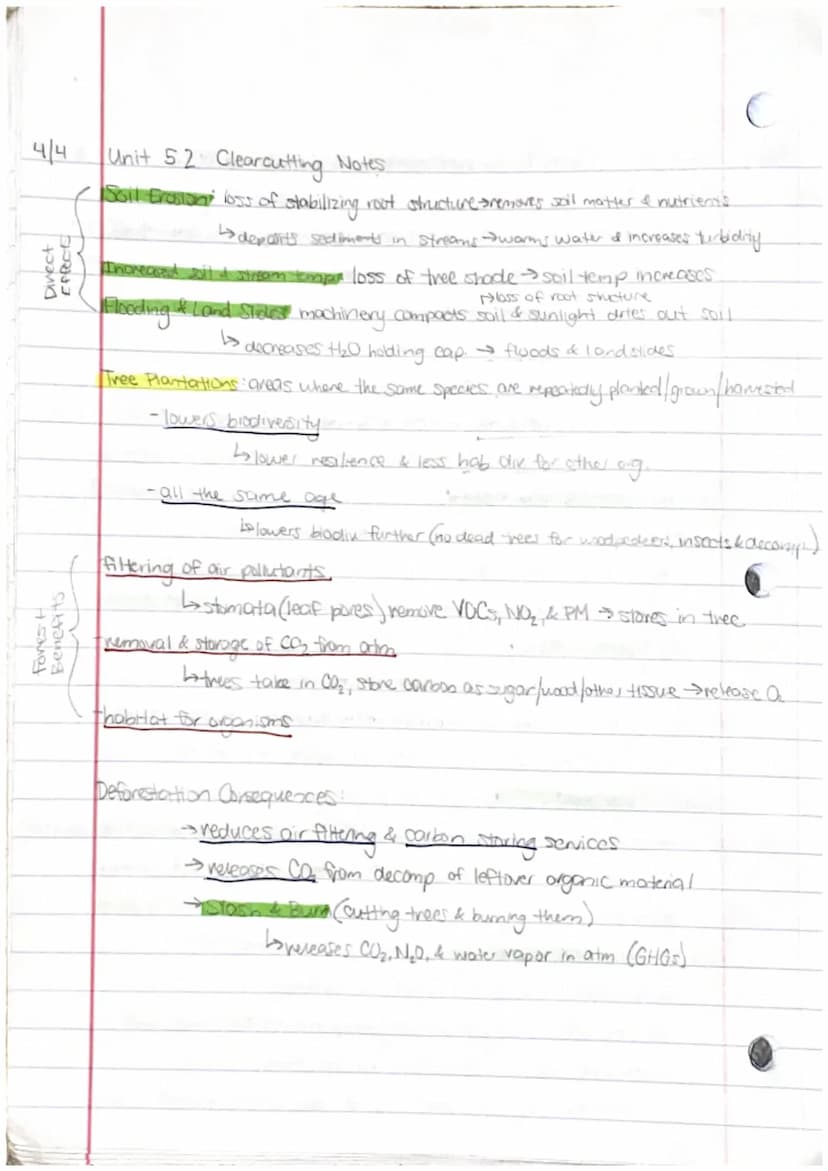 4/4 Unit 5.2 Clearcutting Notes
Direct Effect
Soil Erosion: loss of stabilizing root structure → removes soil matter & nutrients
↳ deposits sediments in streams → warms water & increases turbidity
Increased soil & stream temp: loss of tree shade → soil temp increases
↱ loss of root structure
Flooding & Land Slides: machinery compacts soil & sunlight dries out soil
↳ decreases H2O holding cap. → floods & landslides
Tree Plantations: areas where the same species are repeatedly planted/grown/harvested
- lowers biodiversity
↳ lower resilience & less hab div for other org.
- all the same age
↳ lowers biodiv further (no dead trees for woodpeckers, insects & decomp.)
Forest Benefits
filtering of air pollutants
↳ stomata (leaf pores) remove VOCs, NO2, & PM → stores in tree
removal & storage of CO2 from atm
↳ trees take in CO2, store carbon as sugar/wood/other tissue → release O2
habitat for organisms
Deforestation Consequences:
→ reduces air filtering & carbon storing services
→ releases CO2 from decomp of leftover organic material
→ Slash & Burn (cutting trees & burning them)
↳ releases CO2, N2O, & water vapor in atm (GHGs)